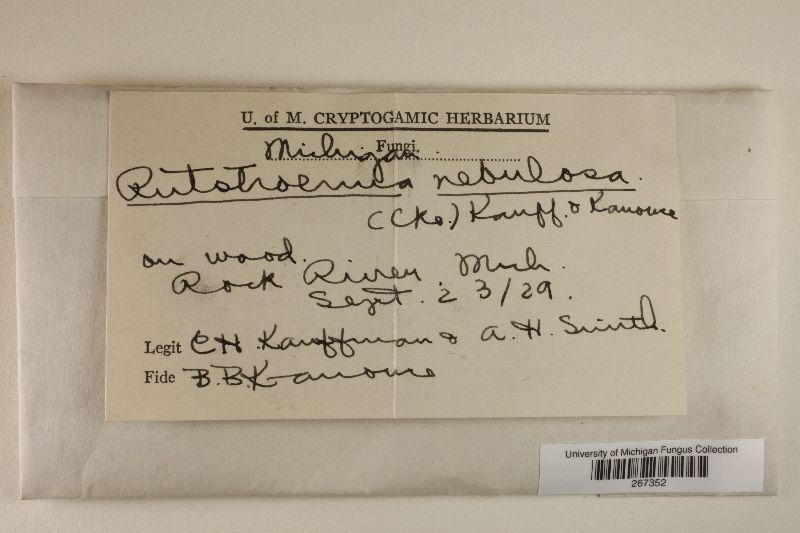 U. of M. CRYPTOGAMIC HERBARIUM
Michigan Fungi.
Rutstroemia nebulosa.
(Cke.) Kauff. & Kanouse
on wood.
Rock River. Mich.
Sept. 23/29.
Legit C H Kauffman & A. H. Smith.
Fide B. B. Kanouse
University of Michigan Fungus Collection
267352